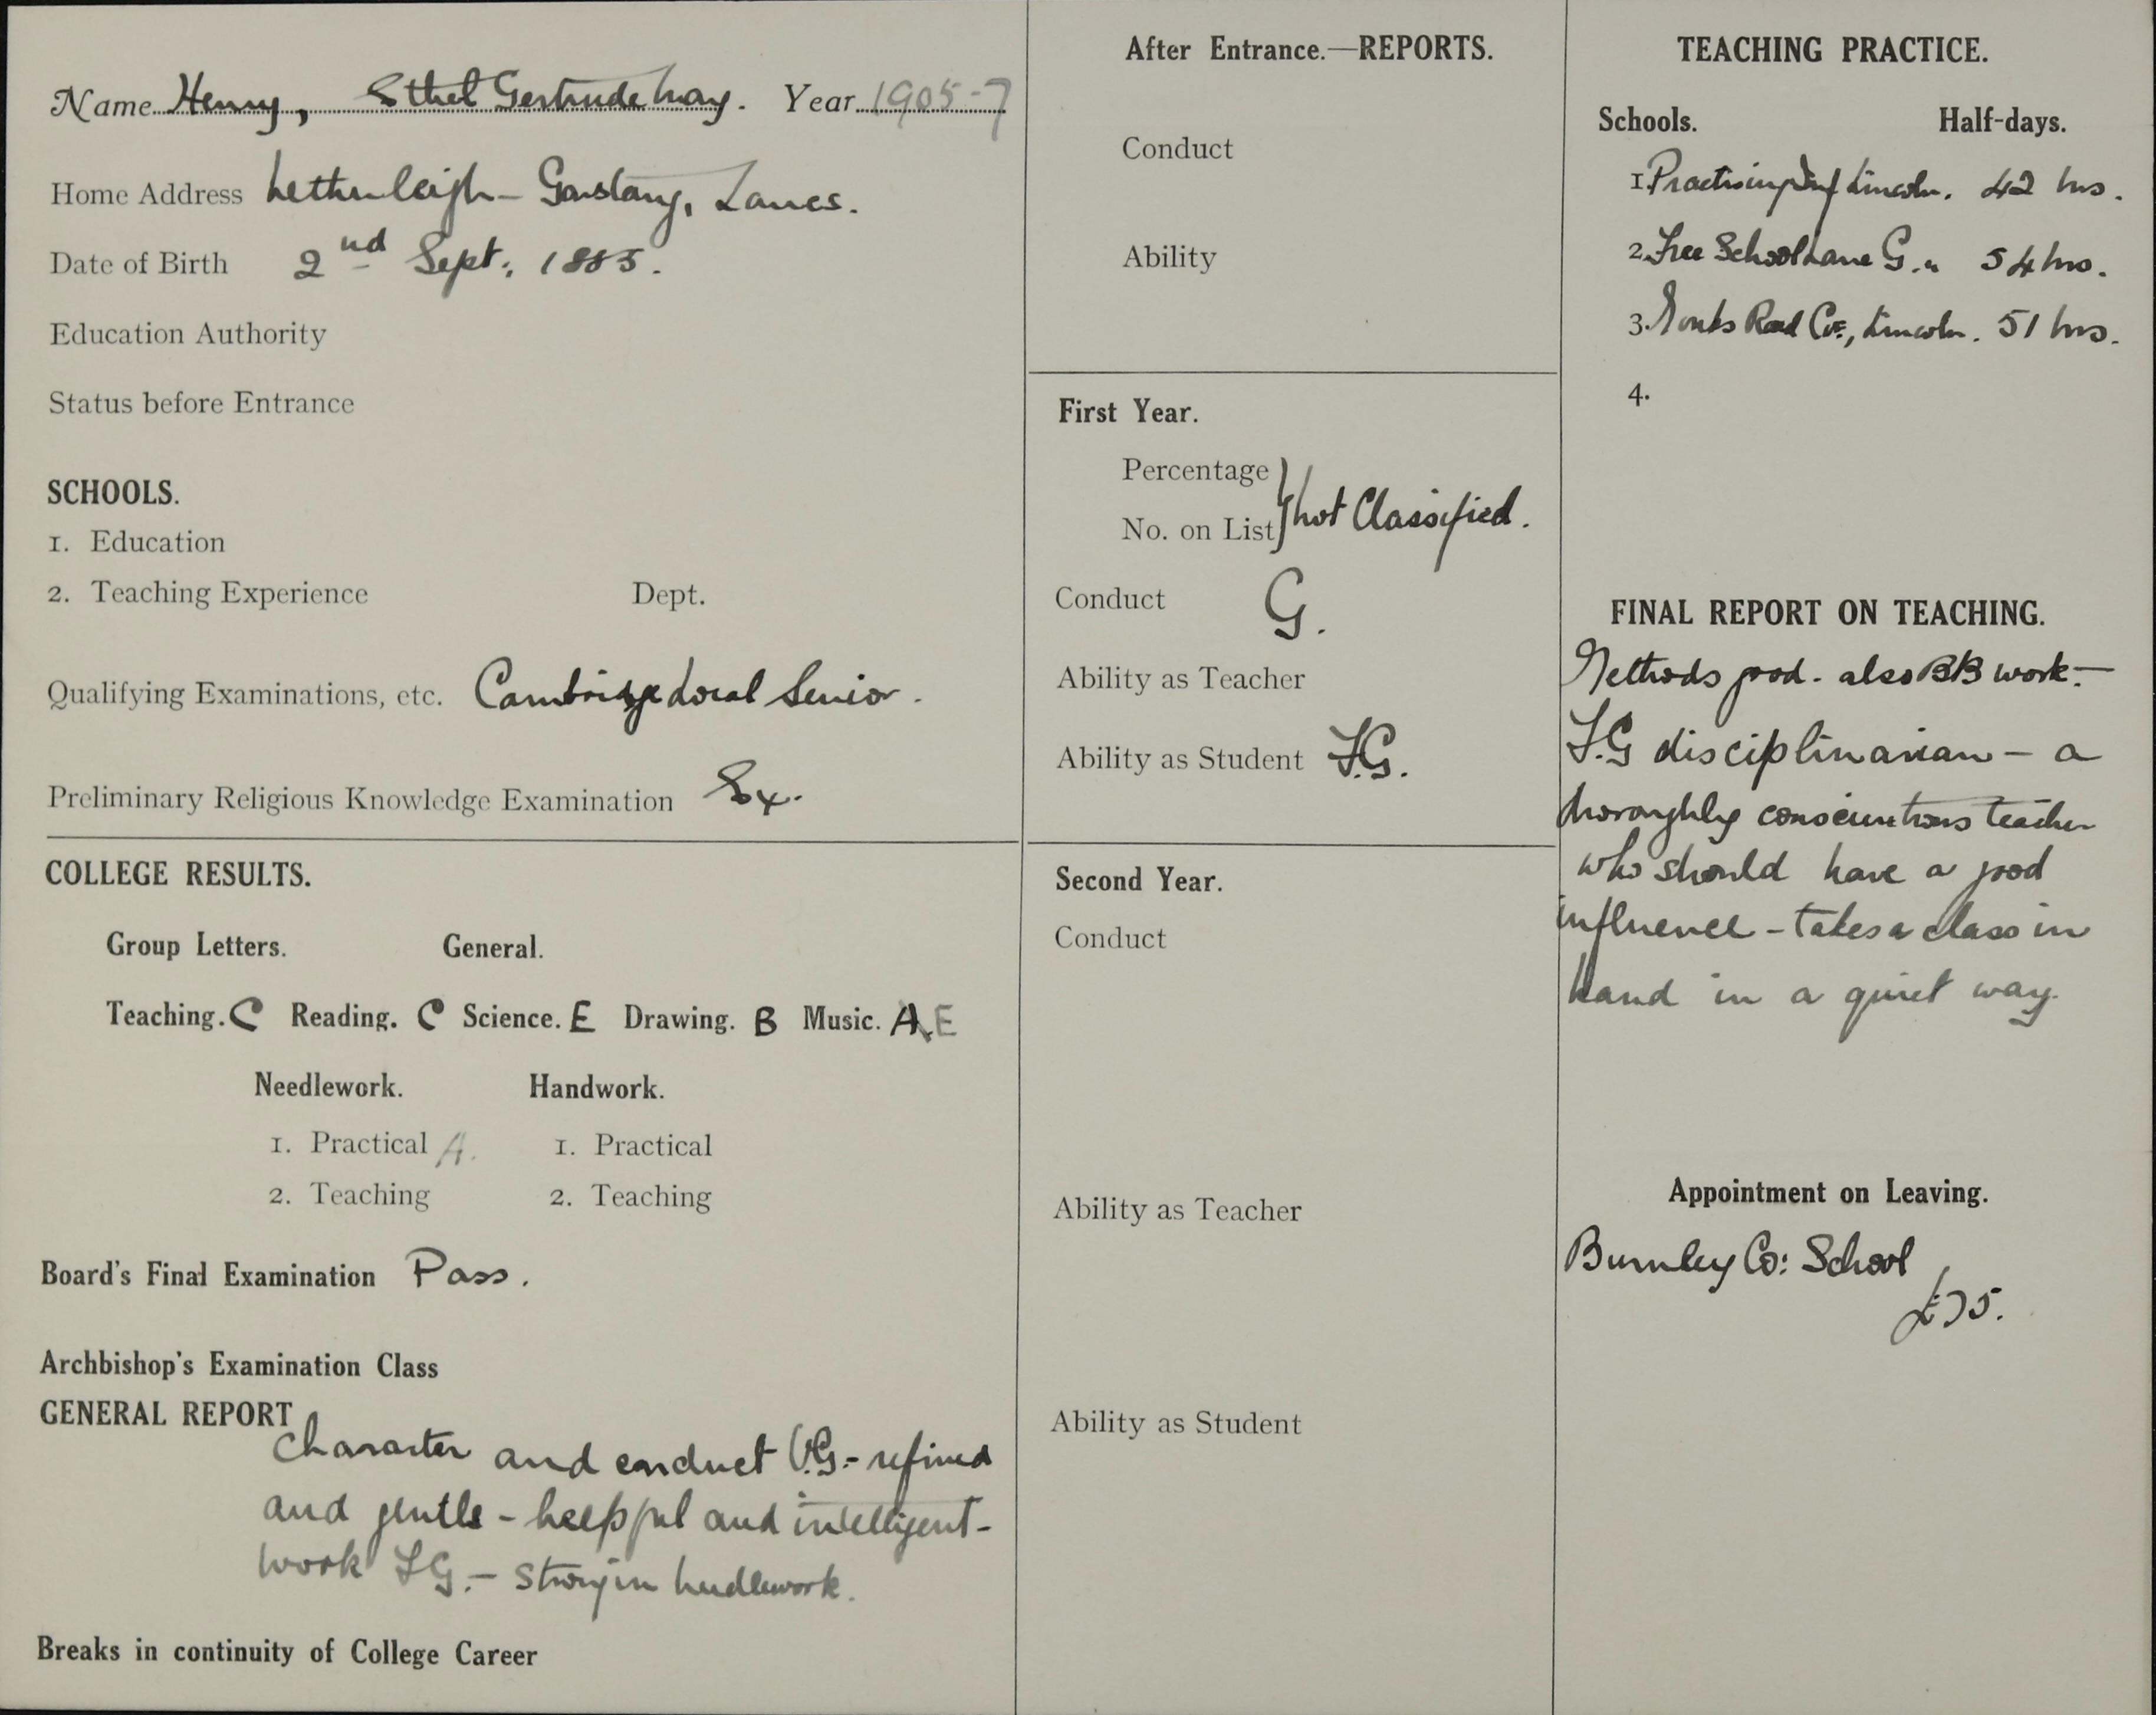 Name Henry, Ethel Gertrude May. Year 1905-7
Home Address Letherleigh - Garstang, Lancs.
Date of Birth 2nd Sept., 1885.
Education Authority
Status before Entrance
SCHOOLS.
1. Education
2. Teaching Experience Dept.
Qualifying Examinations, etc. Cambridge Local Senior.
Preliminary Religious Knowledge Examination Ex.
COLLEGE RESULTS.
Group Letters. General.
Teaching. C Reading. C Science. E Drawing. B Music. A. E
Needlework. Handwork.
1. Practical A. 1. Practical
2. Teaching 2. Teaching
Board's Final Examination Pass.
Archbishop's Examination Class
GENERAL REPORT
Character and conduct V.G. - refined
and gentle - helpful and intelligent -
work F.G. - strong in needlework.
Breaks in continuity of College Career
After Entrance.—REPORTS.
Conduct
Ability
First Year.
Percentage
No. on List } Not Classified.
Conduct G.
Ability as Teacher
Ability as Student F.G.
Second Year.
Conduct
Ability as Teacher
Ability as Student
TEACHING PRACTICE.
Schools. Half-days.
1. Practising Inf Lincoln. 42 hrs.
2. Free School Lane G. " 54 hrs.
3. Monks Road Co:, Lincoln. 51 hrs.
4.
FINAL REPORT ON TEACHING.
Methods good. also BB work. —
F.G disciplinarian — a
thoroughly conscientious teacher
who should have a good
influence - takes a class in
hand in a quiet way.
Appointment on Leaving.
Burnley Co: School
£75.